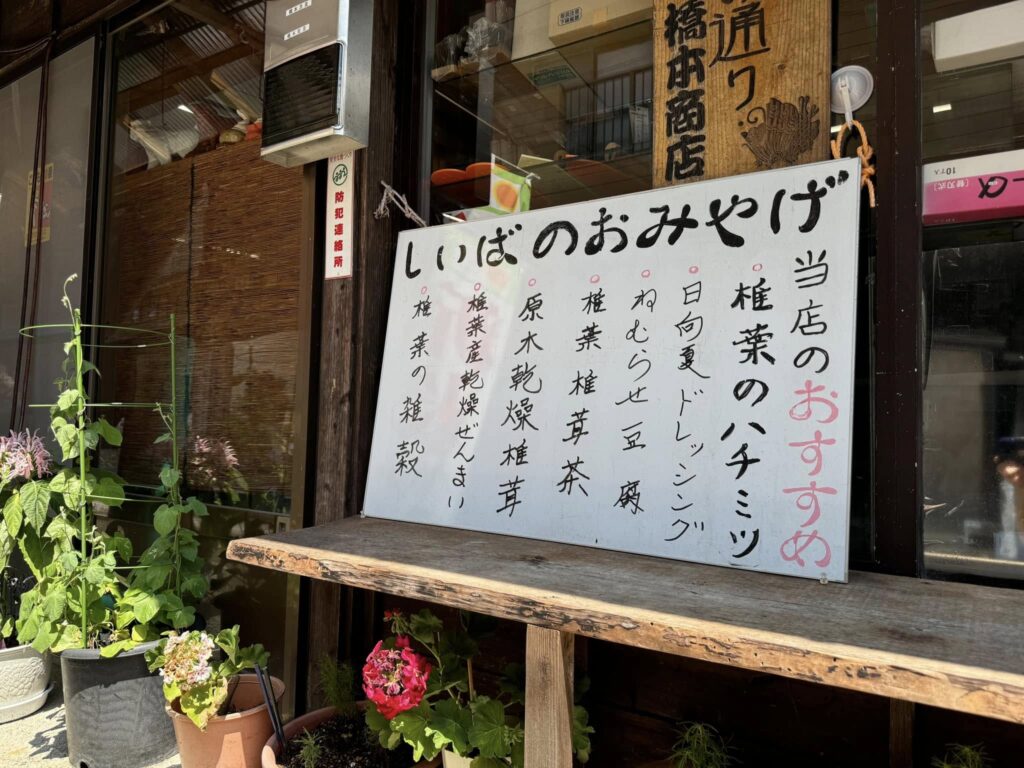 しいばのおみやげ
当店のおすすめ
椎葉のハチミツ
日向夏ドレッシング
ねむらせ豆腐
椎葉椎茸茶
原木乾燥椎茸
椎葉産乾燥ぜんまい
椎葉の雑穀
通り
橋本商店
防犯連絡所